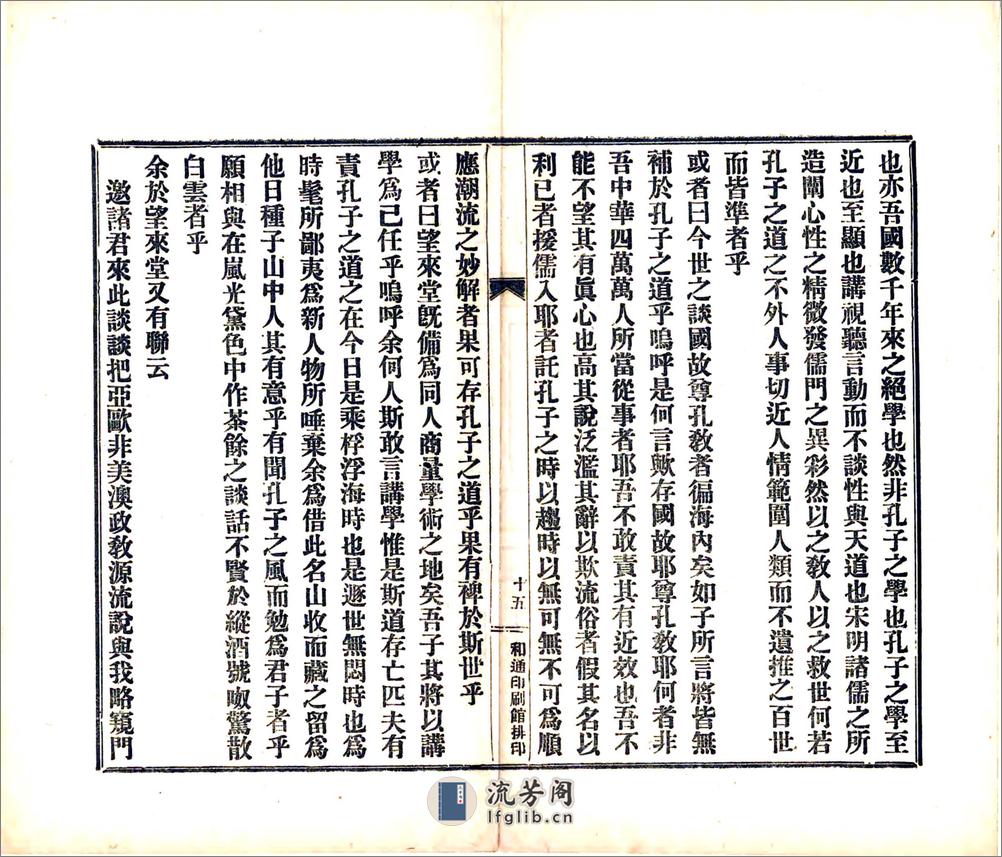 也亦吾國數千年來之絕學也然非孔子之學也孔子之學至
近也至顯也講視聽言動而不談性與天道也宋明諸儒之所
造闡心性之精微發儒門之異彩然以之教人以之救世何若
孔子之道之不外人事切近人情範圍人類而不遺推之百世
而皆準者乎
或者曰今世之談國故尊孔教者徧海內矣如子所言將皆無
補於孔子之道乎嗚呼是何言歟存國故耶尊孔教耶何者非
吾中華四萬萬人所當從事者耶吾不敢責其有近效也吾不
能不望其有眞心也高其說泛濫其辭以欺流俗者假其名以
利己者援儒入耶者託孔子之時以趨時以無可無不可爲順
十五
和通印刷館排印
應潮流之妙解者果可存孔子之道乎果有裨於斯世乎
或者曰望來堂旣備爲同人商量學術之地矣吾子其將以講
學爲己任乎嗚呼余何人斯敢言講學惟是斯道存亡匹夫有
責孔子之道之在今日是乘桴浮海時也是遯世無悶時也爲
時髦所鄙夷爲新人物所唾棄余爲借此名山收而藏之留爲
他日種子山中人其有意乎有聞孔子之風而勉爲君子者乎
願相與在嵐光黛色中作茶餘之談話不賢於縱酒號呶驚散
白雲者乎
余於望來堂又有聯云
邀諸君來此談談把亞歐非美澳政教源流說與我略窺門
流芳阁
lfglib.cn